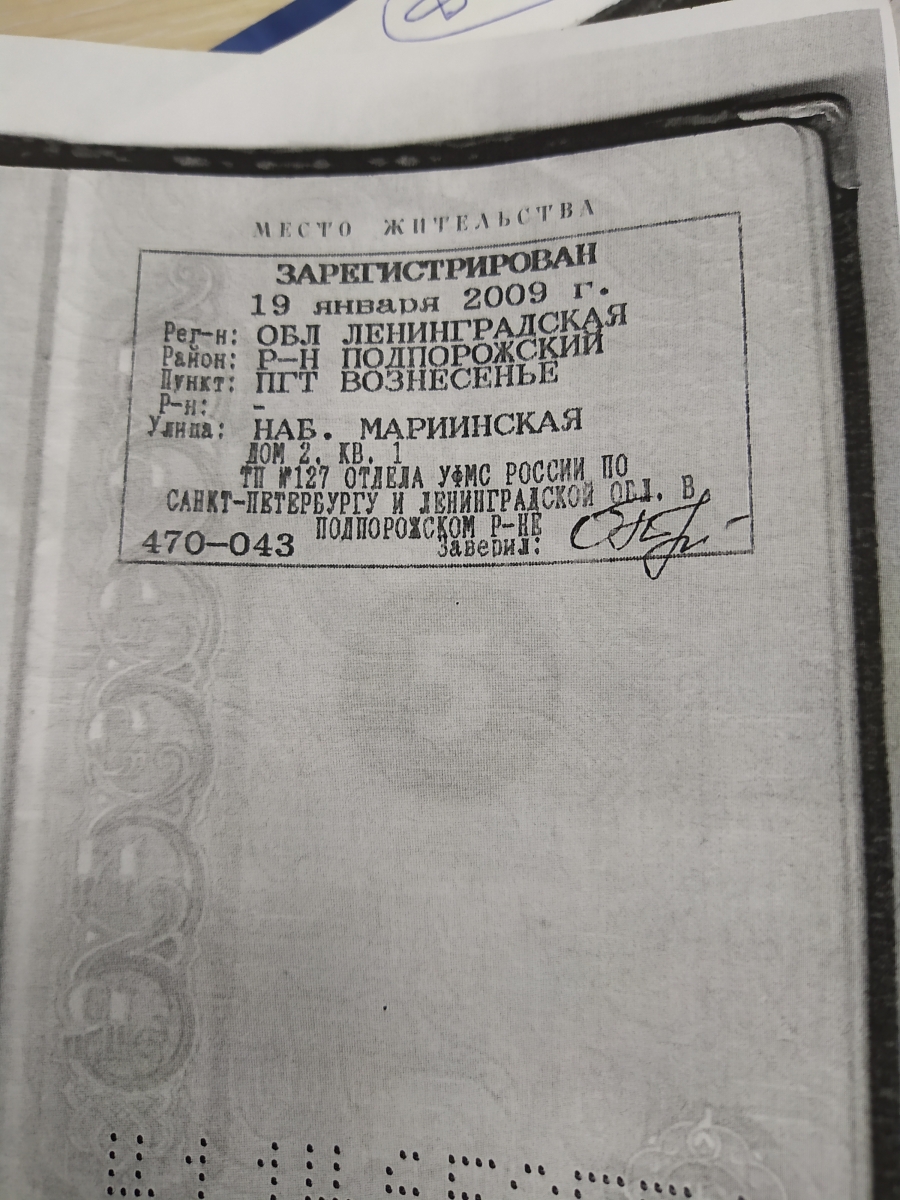 МЕСТО ЖИТЕЛЬСТВА
ЗАРЕГИСТРИРОВАН
19 января 2009 г.
Рег-н: ОБЛ ЛЕНИНГРАДСКАЯ
Район: Р-Н ПОДПОРОЖСКИЙ
Пункт: ПГТ ВОЗНЕСЕНЬЕ
Р-н: -
Улица: НАБ. МАРИИНСКАЯ
ДОМ 2, КВ. 1
ТП №127 ОТДЕЛА УФМС РОССИИ ПО
САНКТ-ПЕТЕРБУРГУ И ЛЕНИНГРАДСКОЙ ОБЛ. В
ПОДПОРОЖСКОМ Р-НЕ
470-043 Заверил:
5